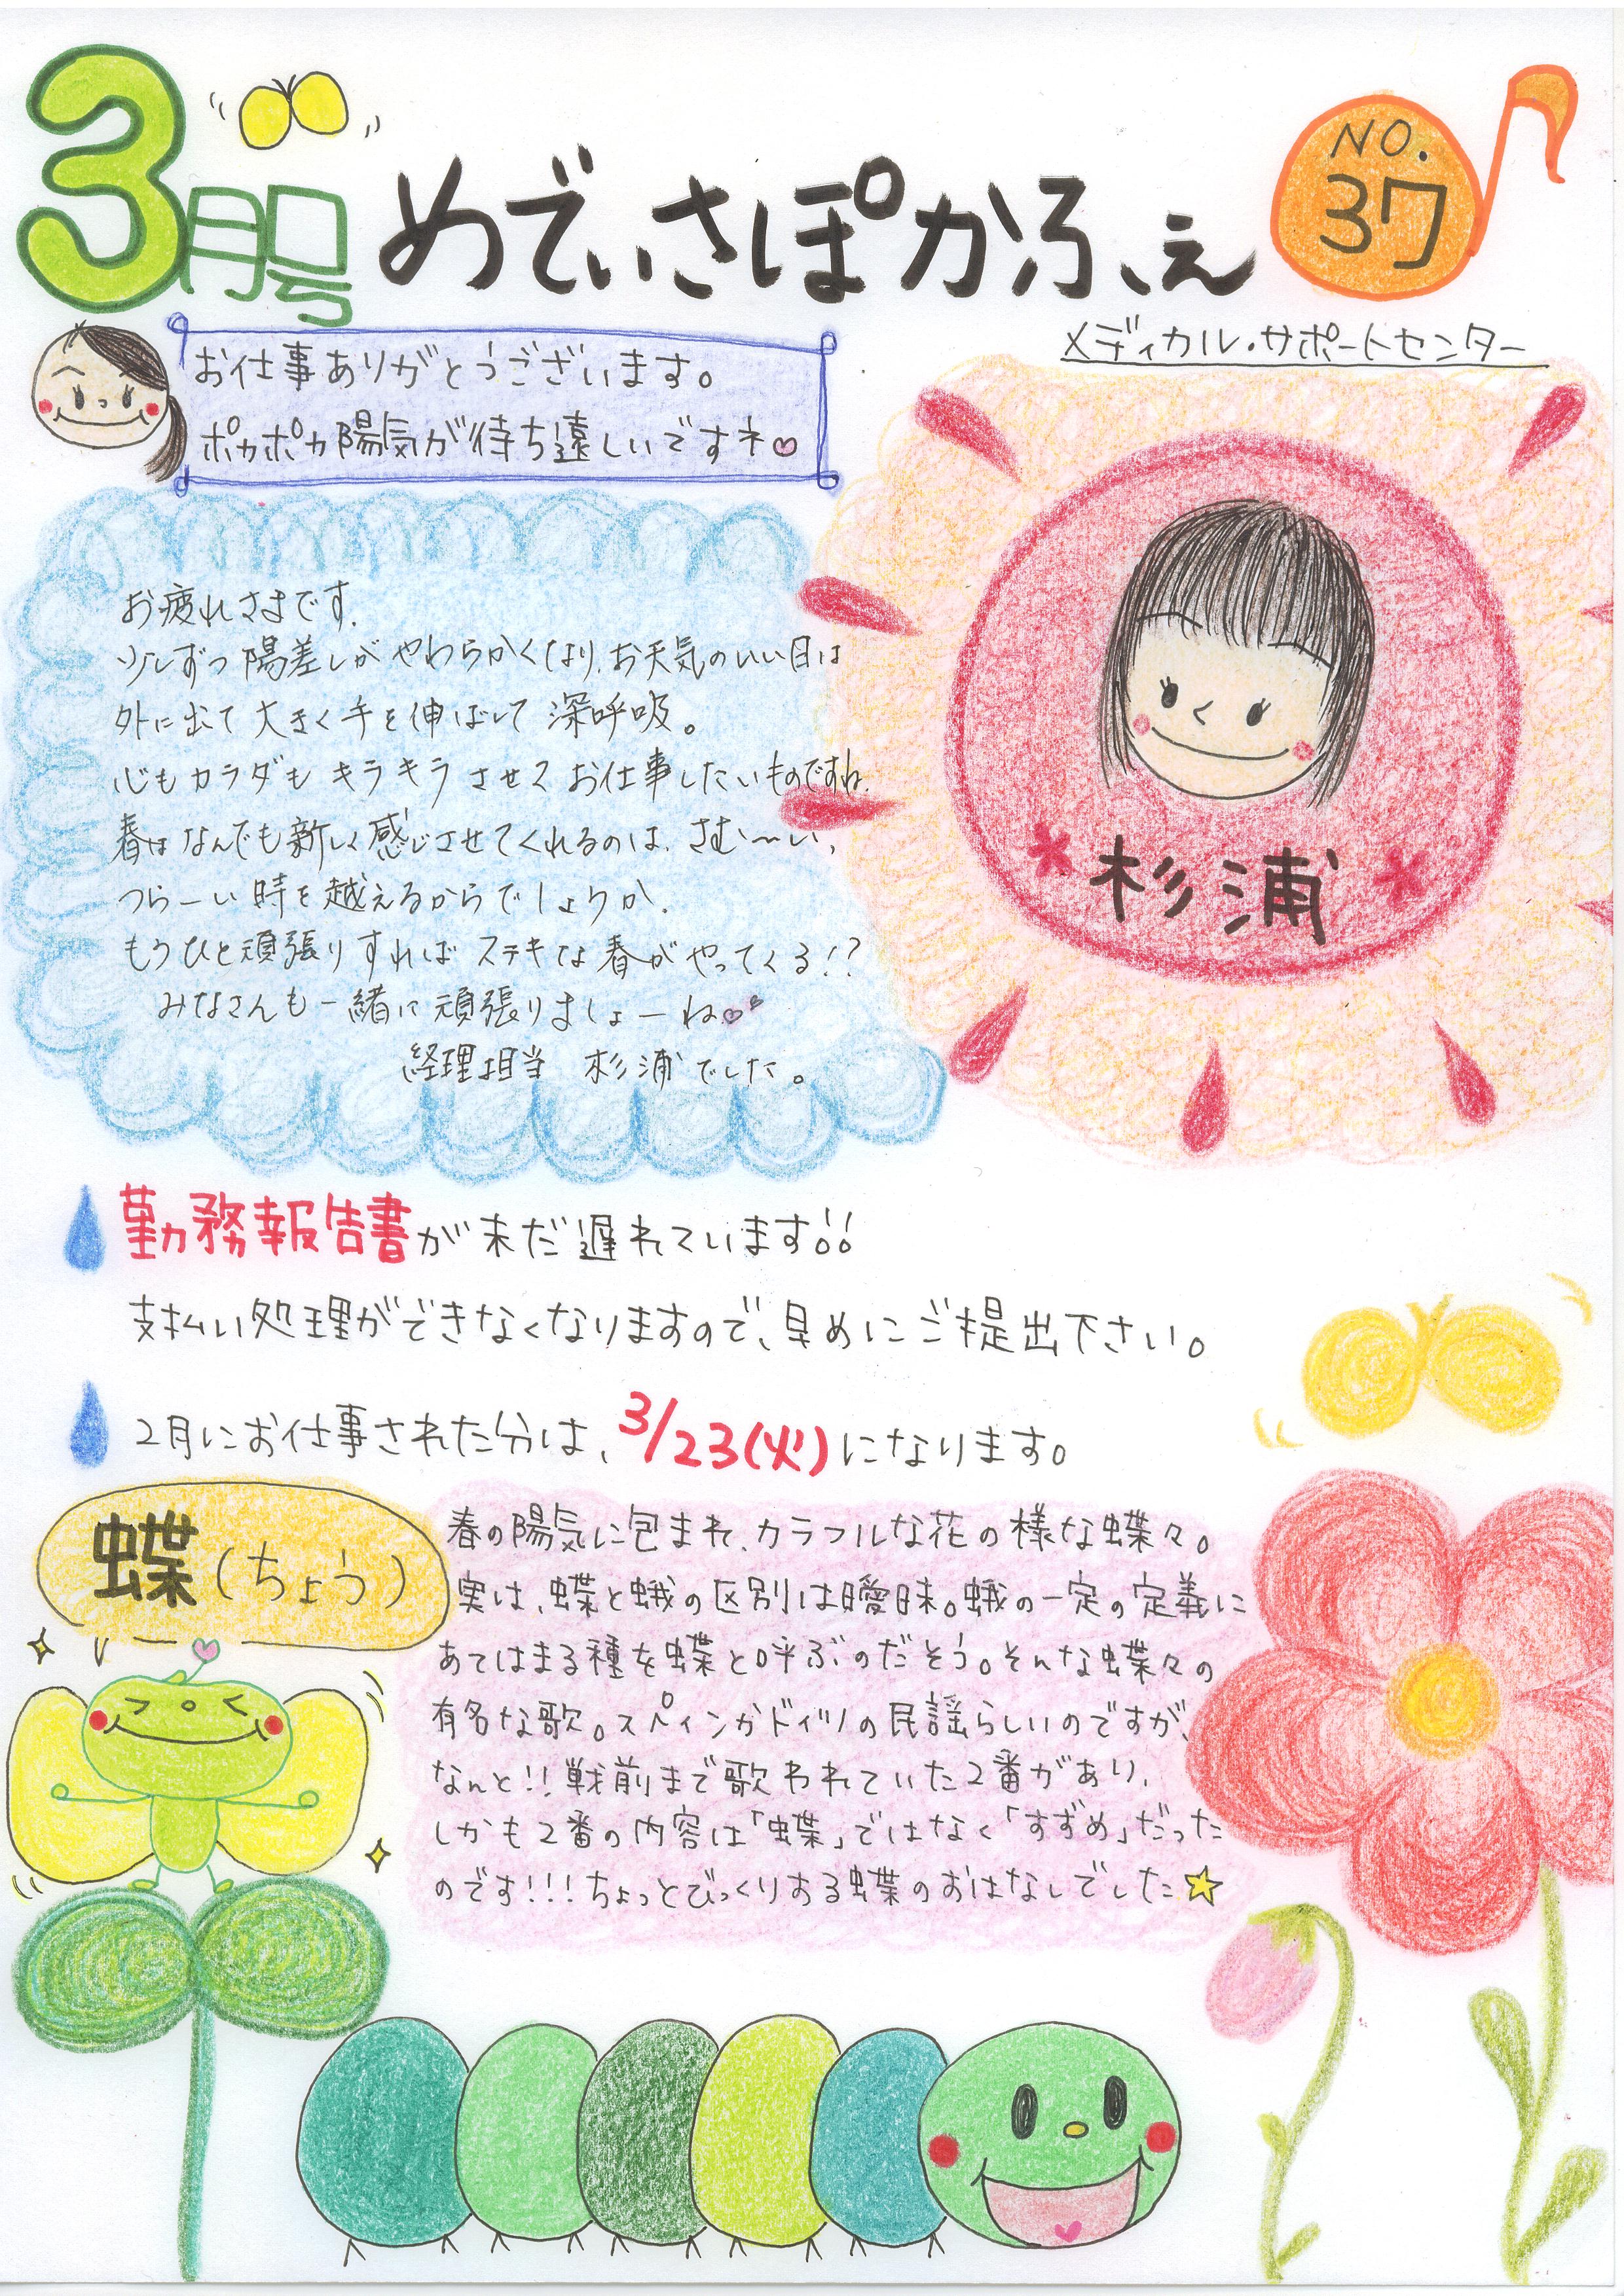 3月号
めでぃさぽかふぇ
NO.
37
メディカル・サポートセンター
お仕事ありがとうございます。
ポカポカ陽気が待ち遠しいですネ
お疲れさまです.
少しずつ陽差しがやわらかくなり、お天気のいい日は
外に出て大きく手を伸ばして深呼吸。
心もカラダもキラキラさせてお仕事したいものですね.
春はなんでも新しく感じさせてくれるのは、さむ〜い、
つらーい時を越えるからでしょうか.
もうひと頑張りすればステキな春がやってくる!?
みなさんも一緒に頑張りましょーね
経理担当 杉浦でした。
*杉浦*
勤務報告書が未だ遅れています!!
支払い処理ができなくなりますので、早めにご提出下さい。
2月にお仕事された分は、3/23(火)になります。
蝶(ちょう)
春の陽気に包まれ、カラフルな花の様な蝶々。
実は、蝶と蛾の区別は曖昧。蛾の一定の定義に
あてはまる種を蝶と呼ぶのだそう。そんな蝶々の
有名な歌。スペインかドイツの民謡らしいのですが、
なんと!!戦前まで歌われていた2番があり、
しかも2番の内容は「蝶」ではなく「すずめ」だった
のです!!!ちょっとびっくりする蝶のおはなしでした☆